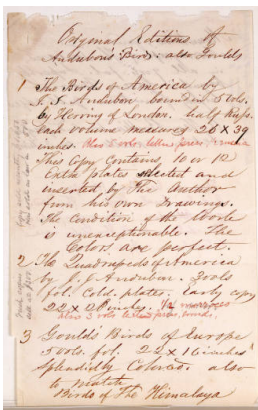 Original Editions of
Audubon's Birds: also Goulds
1 The Birds of America by
J. J. Audubon bound in 5 vols.
by Herring of London. half Russ.
Each volume measures 26 x 39
inches. Also 5 vols. letter press,
This Copy Contains 10 or 12
Extra plates selected and
inserted by The Author
from his own Drawings.
The Condition of the Work
is unexceptionable. The
Colors are perfect.
2 The Quadrupeds of America
by J. J. Audubon. 3 vols
fol. Cold. plates. Early copy
22 x 28 inches. 1/2 morocco
also 3 vols letter press, bound.
3 Gould's Birds of Europe
5 vols. fol. 22 x 16 inches
Splendidly Colored. also
to match
Birds of The Himalaya